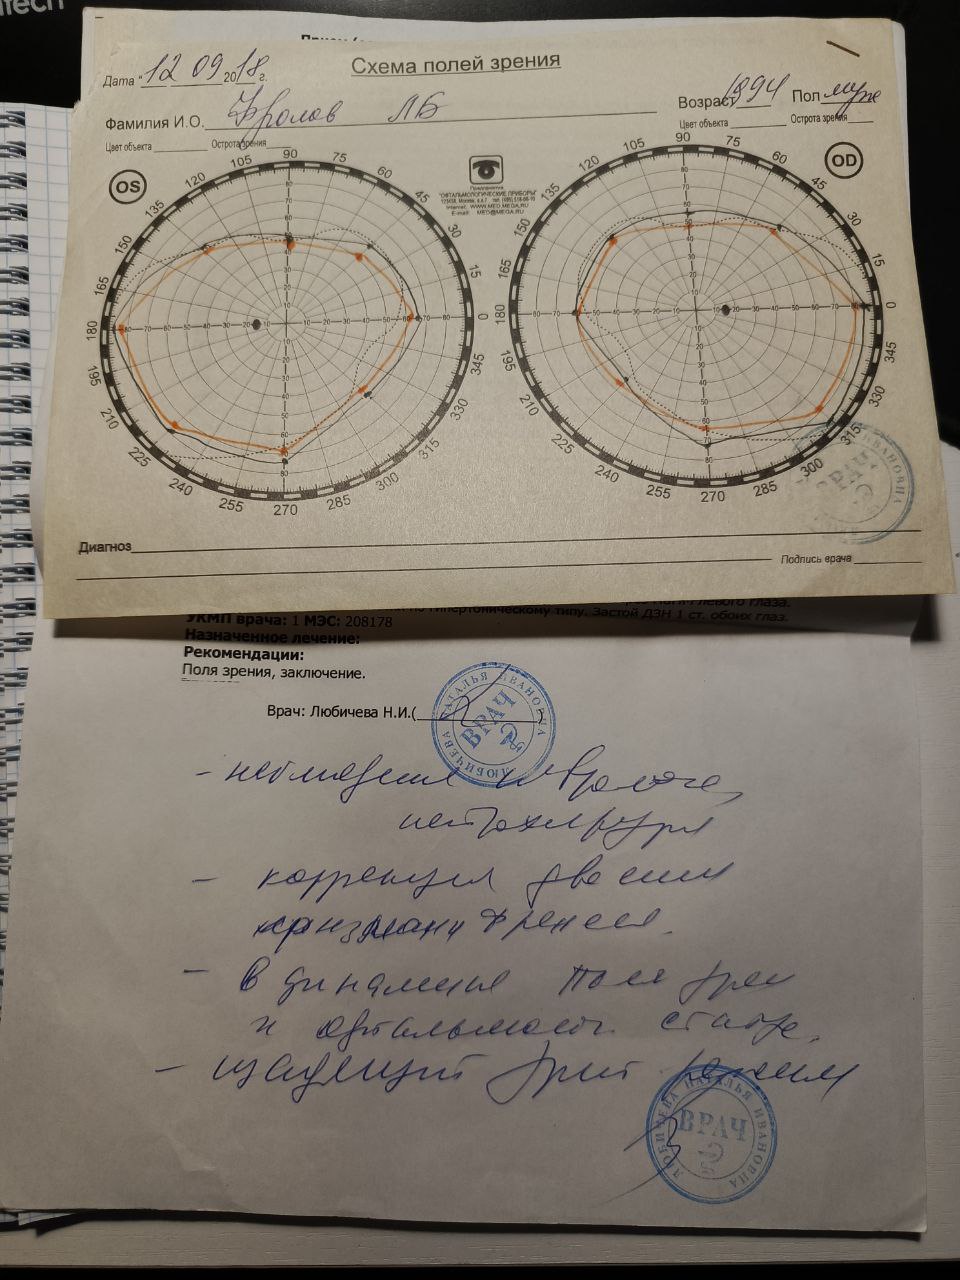 Дата "12 09 2018 г.
Схема полей зрения
Фамилия И.О. Фролов
Возраст 1994 Пол муж
Цвет объекта Острота зрения
Цвет объекта Острота зрения
OS
OD
Предприятие
"ОФТАЛЬМОЛОГИЧЕСКИЕ ПРИБОРЫ"
Internet: WWW.MED.MEGA.RU
E-mail: MED@MEGA.RU
90 75 60 45 30 15 0 345 330 315 300 285 270 255 240 225 210 195 180 165 150 135 120 105
90 75 60 45 30 15 0 345 330 315 300 285 270 255 240 225 210 195 180 165 150 135 120 105
Диагноз
Подпись врача
гипертоническому типу. Застой ДЗН 1 ст. обоих глаз.
УКМП врача: 1 МЭС: 208178
Назначенное лечение:
Рекомендации:
Поля зрения, заключение.
Врач: Любичева Н.И.(
ЛЮБИЧЕВА НАТАЛЬЯ ИВАНОВНА
ВРАЧ
- наблюдение невролога,
нейрохирурга
- коррекция двоения
призмами Френеля.
- в динамике поля зрен
и офтальмолог. статус.
- щадящий зрит режим
ЛЮБИЧЕВА НАТАЛЬЯ ИВАНОВНА
ВРАЧ